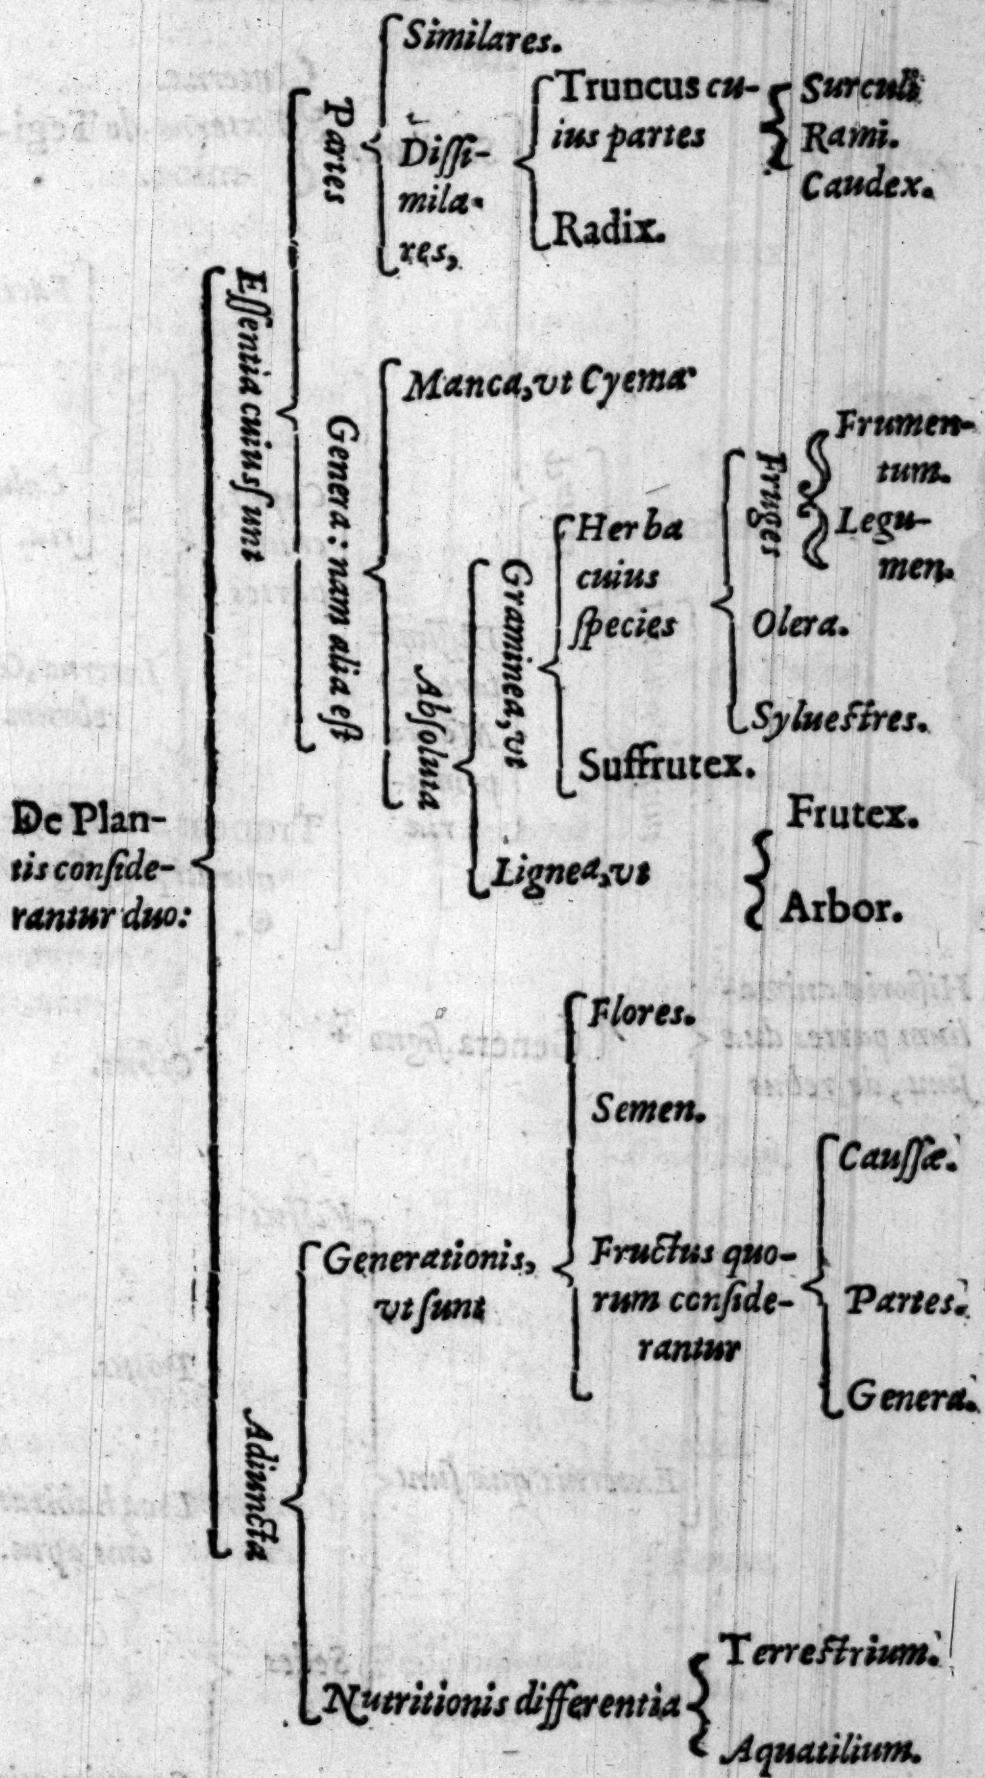 De Plan-
tis conſide-
rantur duo:
Eſſentia cuius ſunt
Partes
Similares.
Diſſi-
mila-
res,
Truncus cu-
ius partes
Surculi
Rami.
Caudex.
Radix.
Genera: nam alia eſt
Manca, vt Cyema
Abſoluta
Graminea, vt
Herba
cuius
ſpecies
Fruges
Frumen-
tum.
Legu-
men.
Olera.
Sylueſtres.
Suffrutex.
Lignea, vt
Frutex.
Arbor.
Adiuncta
Generationis,
vt ſunt
Flores.
Semen.
Fructus quo-
rum conſide-
rantur
Cauſſæ.
Partes.
Genera.
Nutritionis differentia
Terreſtrium.
Aquatilium.